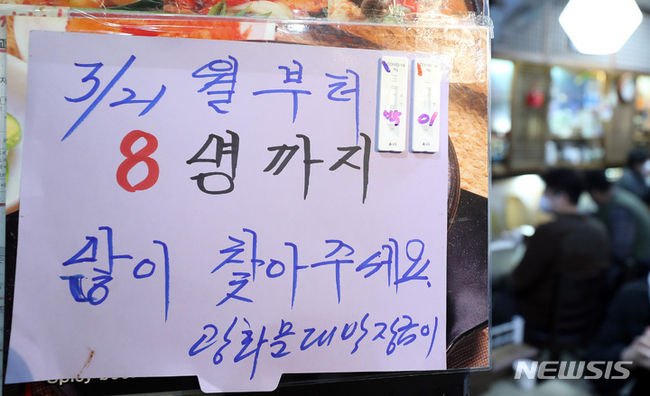 3/21 월부터
8명까지
많이 찾아주세요
광화문대박장금이
Spicy
NEWSIS